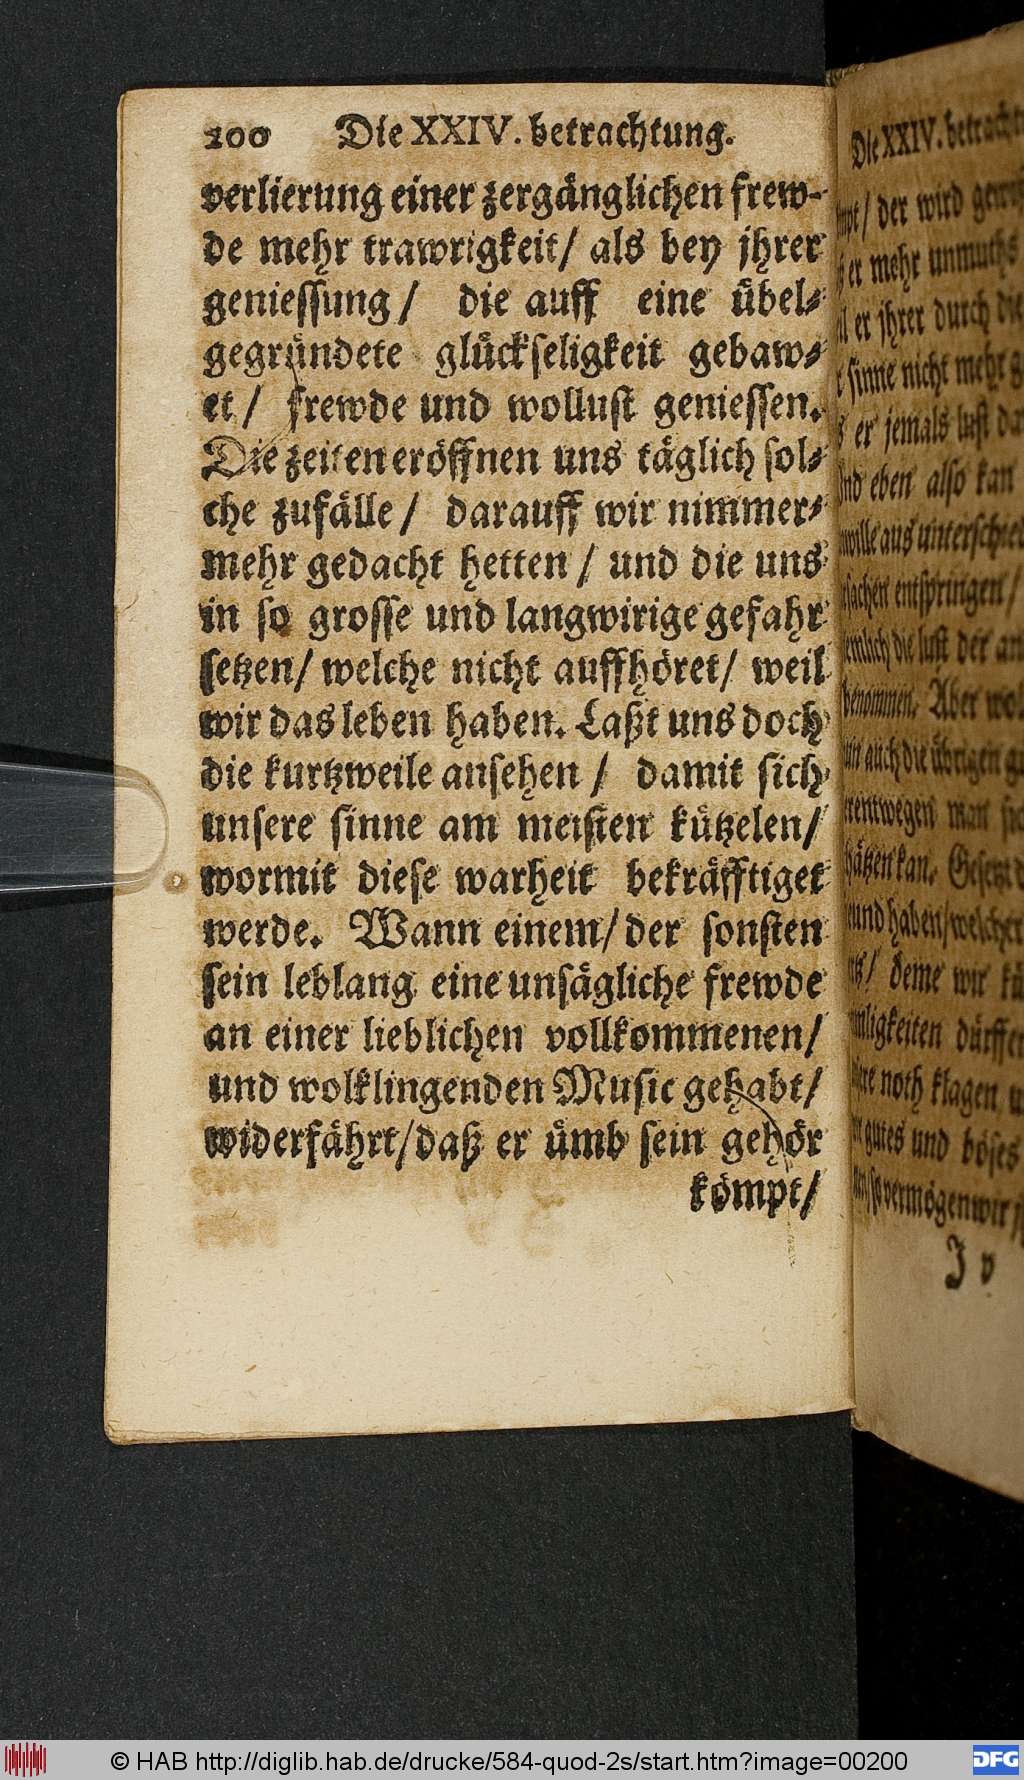 200 Die XXIV. betrachtung.
verlierung einer zergänglichen frew-
de mehr trawrigkeit/ als bey jhrer
geniessung/ die auff eine übel-
gegründete glückseligkeit gebaw-
et/ frewde und wollust geniessen.
Die zeiten eröffnen uns täglich sol-
che zufälle/ darauff wir nimmer-
mehr gedacht hetten/ und die uns
in so grosse und langwirige gefahr
setzen/ welche nicht auffhöret/ weil
wir das leben haben. Laßt uns doch
die kurtzweile ansehen/ damit sich
unsere sinne am meisten kützelen/
wormit diese warheit bekräfftiget
werde. Wann einem/ der sonsten
sein leblang eine unsägliche frewde
an einer lieblichen vollkommenen/
und wolklingenden Music gehabt/
widerfährt/ daß er ümb sein gehör
kömpt/
Die XXIV. betracht
/ der wird
er mehr unmuths
er jhrer durch die
sinne nicht mehr
er jemals lust
eben also kan
wille aus unterschie
sachen entspringen/
die lust der an
benommen. Aber wol
auch die übrigen
man sic
kan. Gesetzt
und haben/ welcher
/ deme wir
ligkeiten dürffen
noth klagen
gutes und böses
vermögen wir
J v
© HAB http://diglib.hab.de/drucke/584-quod-2s/start.htm?image=00200
DFG